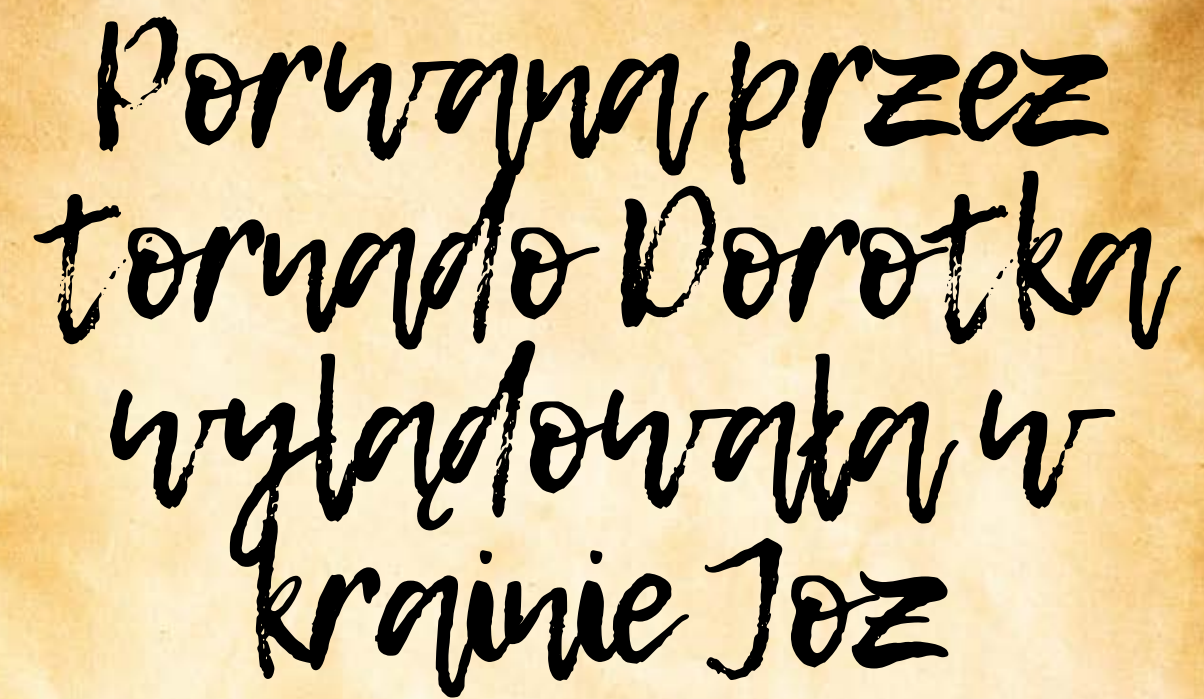 Porwana przez
tornado Dorotka
wylądowała w
krainie Joz